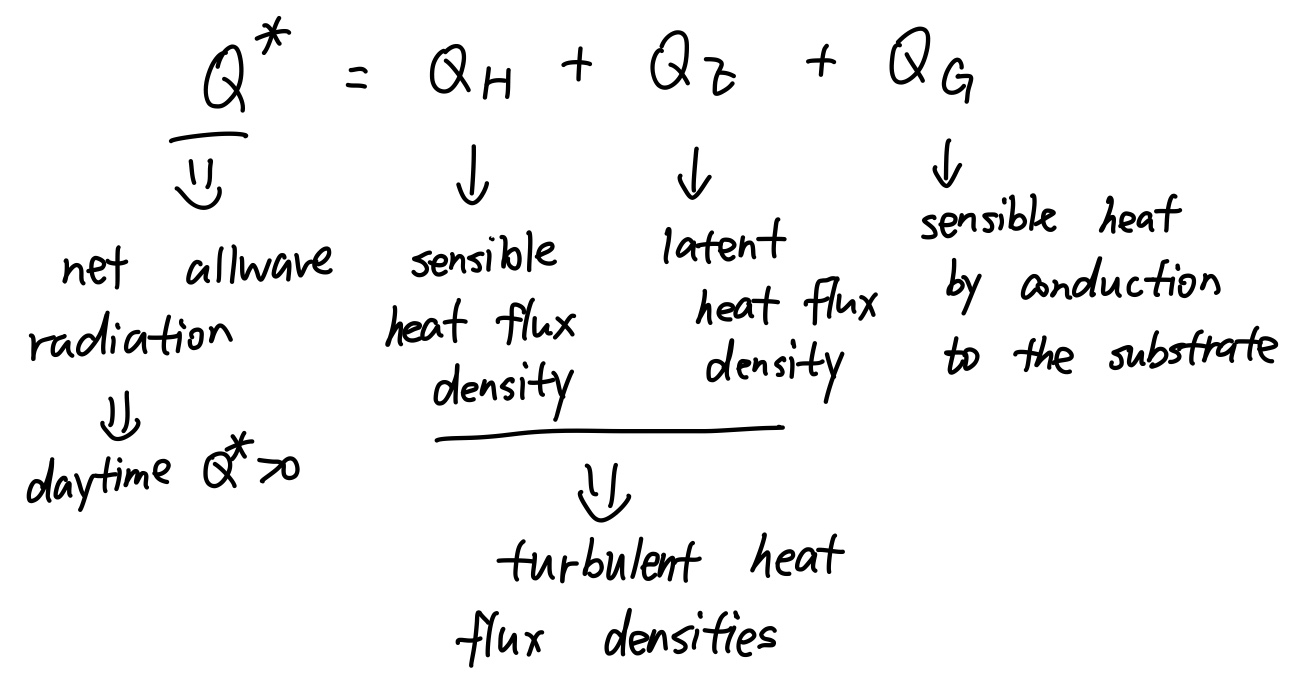 Q* = QH + QE + QG
net allwave
radiation
daytime Q*>0
sensible
heat flux
density
latent
heat flux
density
turbulent heat
flux densities
sensible heat
by conduction
to the substrate